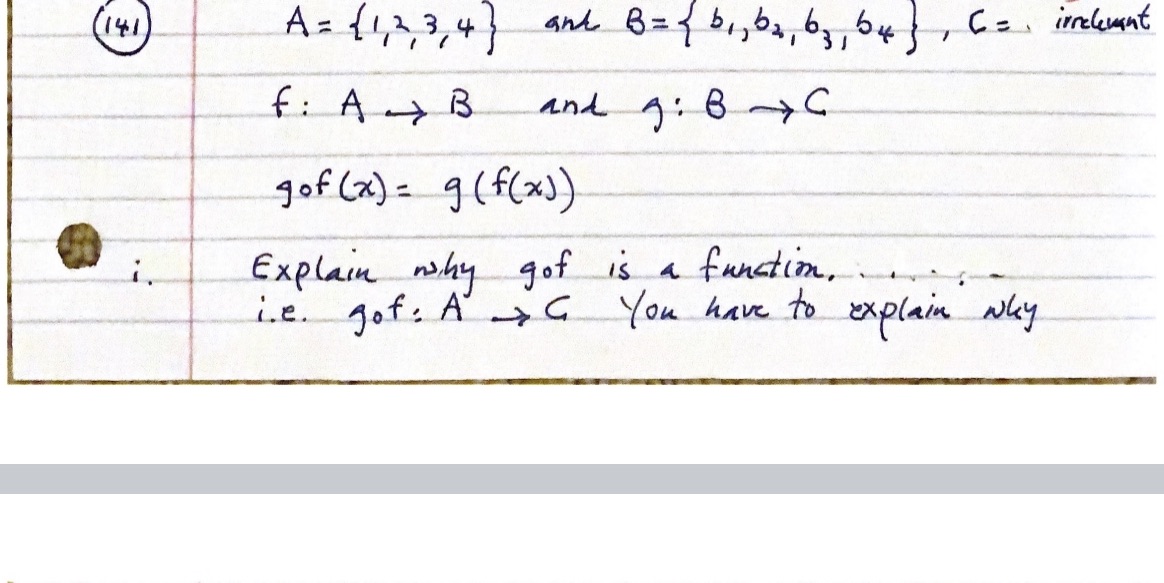 (141) A = {1,2,3,4} and B = { b₁, b₂, b₃, b₄ }, C = . irrelevant
f : A → B and g : B → C
gof(x) = g(f(x))
i. Explain why gof is a function. . . . ; -
i.e. gof : A → C You have to explain why